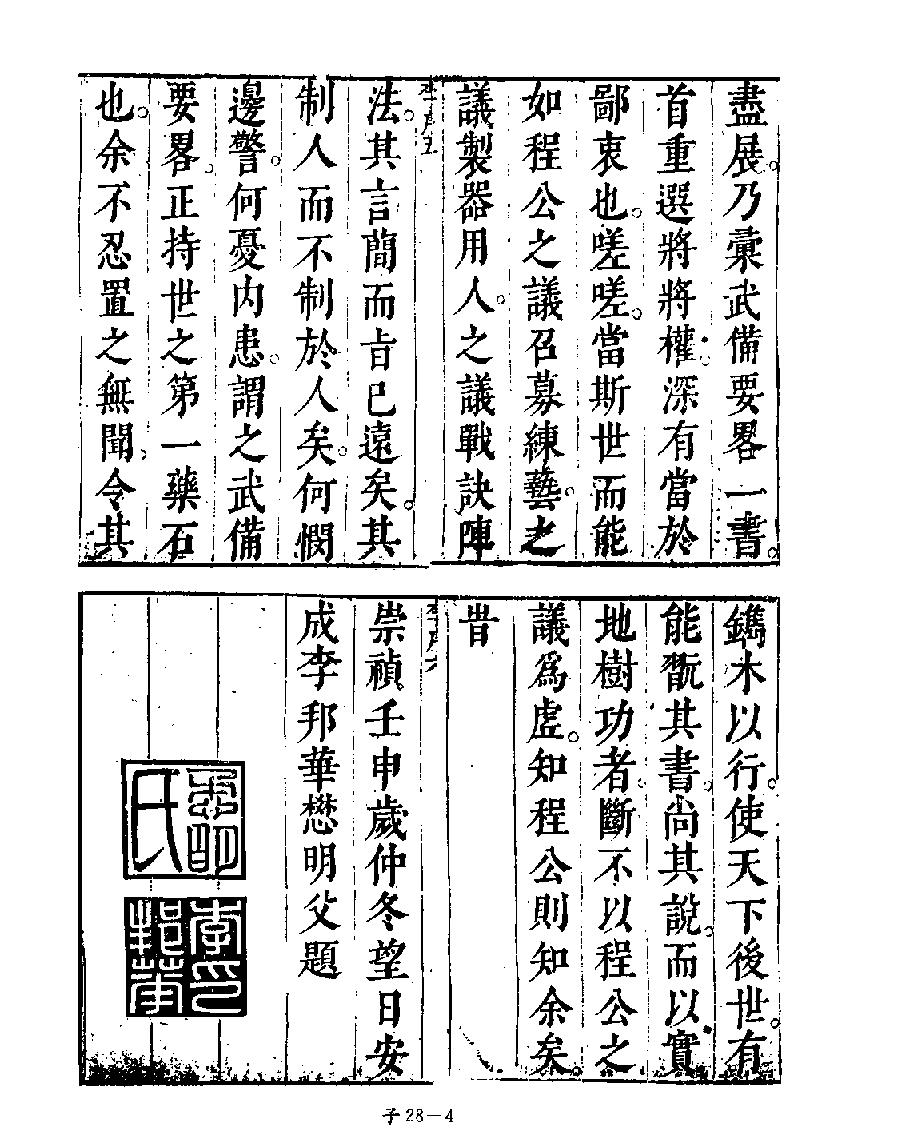 盡展。乃彚武備要畧一書。
首重選將將權。深有當於
鄙衷也。嗟嗟。當斯世而能
如程公之議召募練藝。之
議製器用人。之議戰訣陣
李序五
法。其言簡而旨已遠矣。其
制人而不制於人矣。何憫
邊警。何憂内患。謂之武備
要畧。正持世之第一藥石
也。余不忍置之無聞。令其
鐫木以行。使天下後世。有
能翫其書。尚其說。而以實
地樹功者。斷不以程公之
議爲虛。知程公則知余矣。
昔
李序六
崇禎壬申歲仲冬望日安
成李邦華懋明父題
懋明氏
李邦華印
子28—4